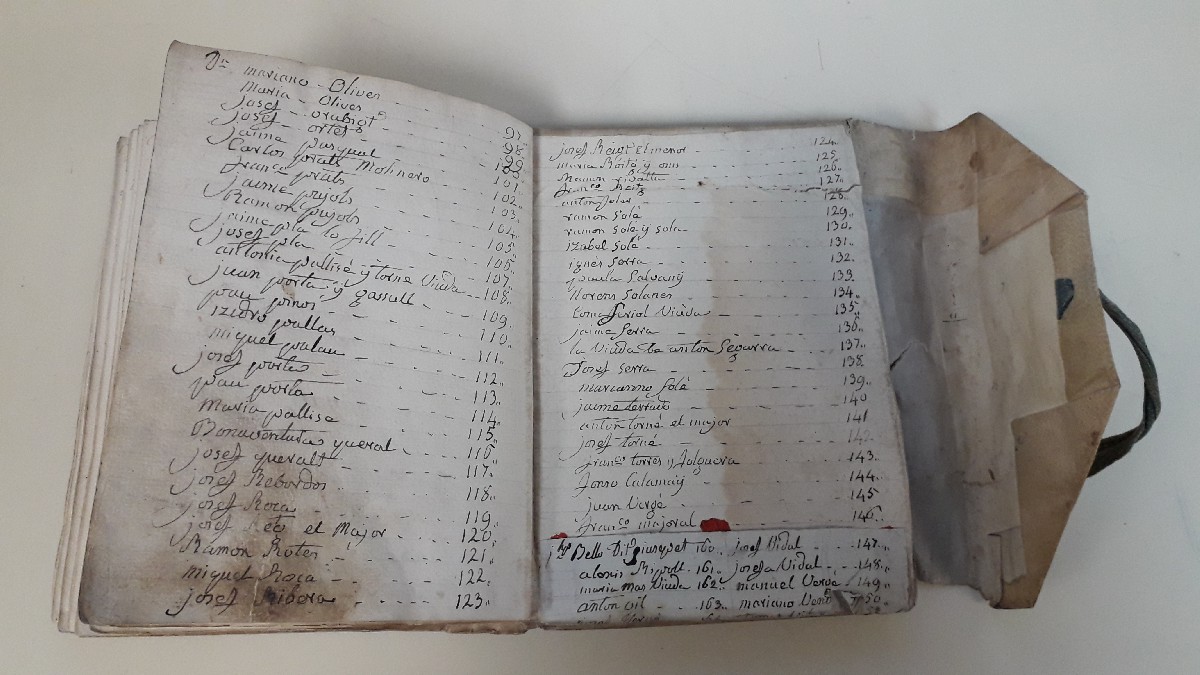 Dn mariano Oliver 97
Maria Oliver 98
Josef 99
Josef ortes 100
Jaime pasqual 101
Carlos prats Molinero 102
franco prats 103
Jaime pujols 104
Ramon pujols 105
Jaime pla lo fill 106
Josef pla 107
antonia pallisé y torné Viuda 108
juan porta y gassull 109
pau pinos 110
Izidro pallas 111
miquel palau 112
josef porta 113
pau porta 114
Maria pallise 115
Bonaventura queral 116
Josef queralt 117
josef Rebordos 118
josef Roca 119
josef el Major 120
Ramon 121
miquel Roca 122
josef Ribera 123
josef el menor 124
maria y 125
Ramon 126
franco 127
anton 128
ramon Solé 129
ramon solé y sola 130
izabel Solé 131
ignes Serra 132
paula Salvany 133
Llorens Solanes 134
Viuda 135
jaime Serra 136
la Viuda de anton Segarra 137
Josef Serra 138
marianno Solé 139
jaime 140
anton torné el major 141
josef torné 142
franco torres y folguera 143
Calamay 144
juan Vergé 145
franco majoral 146
Bello 160 josef Vidal 147
alexis Ripoll 161 josefa Vidal 148
maria mas Viuda 162 manuel Verge 149
anton gil 163 mariano 150